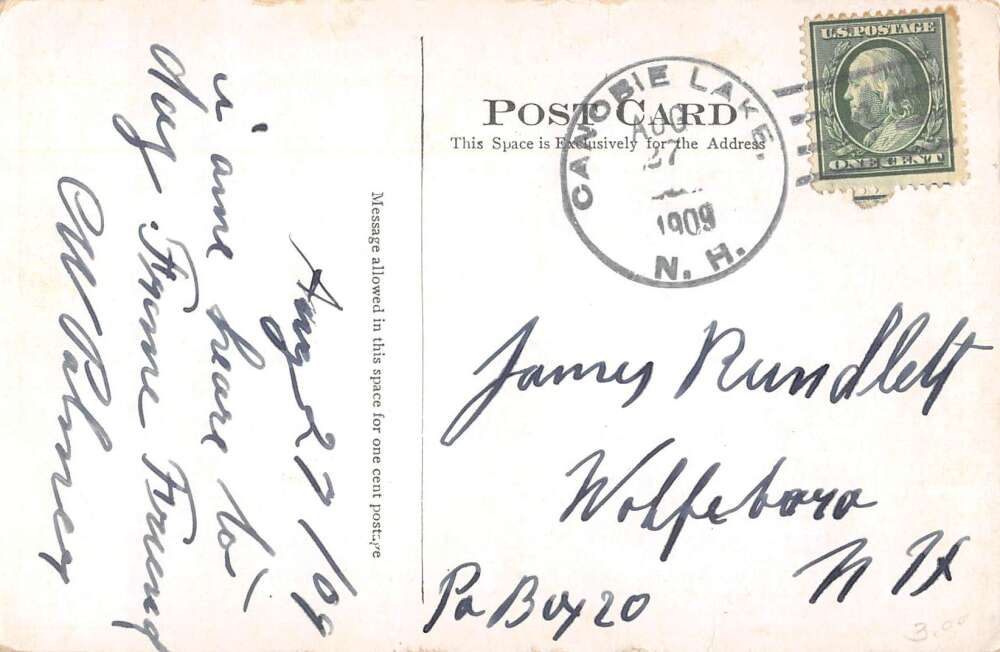 POST CARD
This Space is Exclusively for the Address
CANOBIE LAKE,
AUG
27
1909
N. H.
U.S. POSTAGE
ONE CENT
Message allowed in this space for one cent postage
Aug 27/09
i ame heare to
day
C W Palmer
James Rundlett
Wolfeboro
N H
Po Box 20
3.00